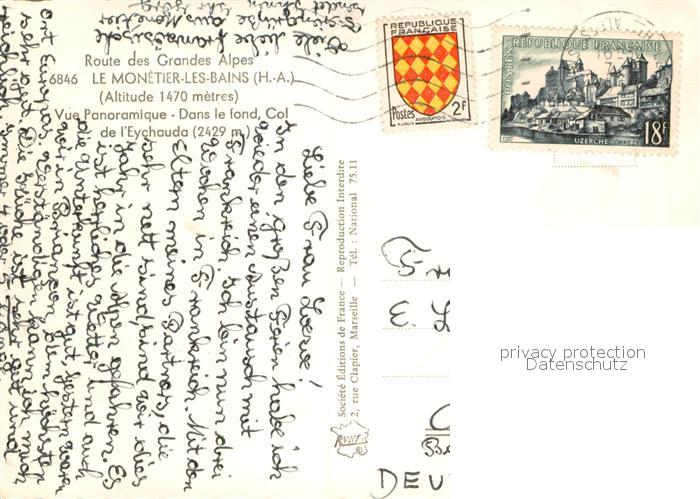 Viele liebe französische
Feriengrüße aus Monétier
Route des Grandes Alpes
6846 LE MONÊTIER-LES-BAINS (H.-A.)
(Altitude 1470 mètres)
Vue Panoramique - Dans le fond, Col
de l'Eychauda (2429 m.)
Liebe Frau Loewe!
In den großen Ferien habe ich
wieder einen Austausch mit
Frankreich. Ich bin nun drei
Wochen in Frankreich. Mit den
Eltern meines Partners, die
sehr nett sind, sind wir dies
Jahr in die Alpen gefahren. Es
ist herrliches Wetter und auch
die Unterkunft ist gut. Gestern waren
wir in Briançon, dem höchsten
Ort Europas. Verständigen kann ich mich
sehr gut. Die Küche ist sehr gut
Société Éditions de France — Reproduction Interdite
2, rue Clapier, Marseille — Tél. : National 75.11
REPUBLIQUE
FRANÇAISE
Postes
2F
ANGOUMOIS
POSTES
REPUBLIQUE FRANÇAISE
18F
UZERCHE
E. L
DEU
privacy protection
Datenschutz